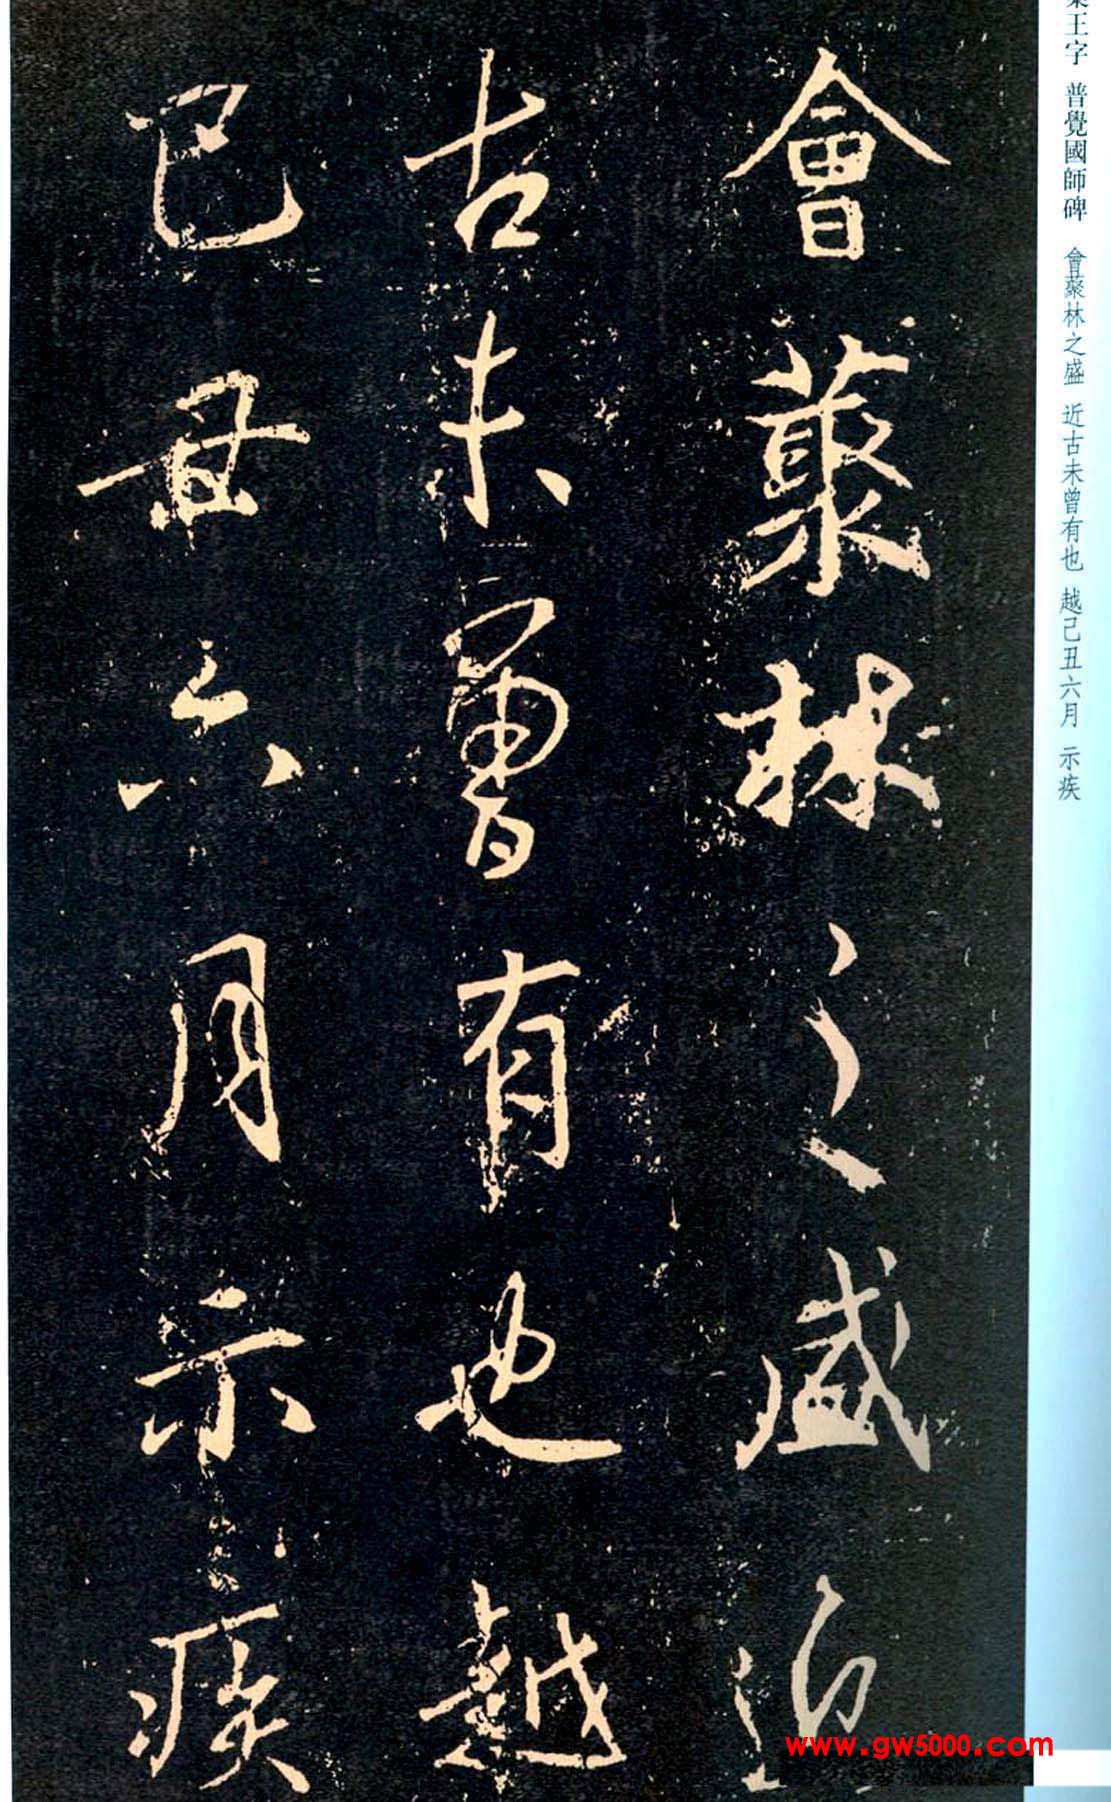 王字 普覺國師碑 會藂林之盛 近古未曾有也 越己丑六月 示疾
會藂林之盛近
古未曾有也越
己丑六月示疾
www.gw5000.com